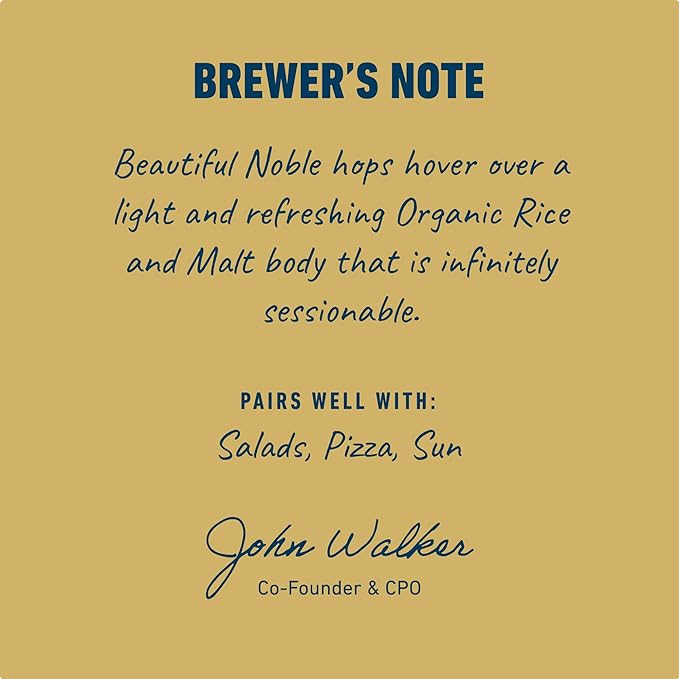 BREWER’S NOTE
Beautiful Noble hops hover over a
light and refreshing Organic Rice
and Malt body that is infinitely
sessionable.
PAIRS WELL WITH:
Salads, Pizza, Sun
John Walker
Co-Founder & CPO